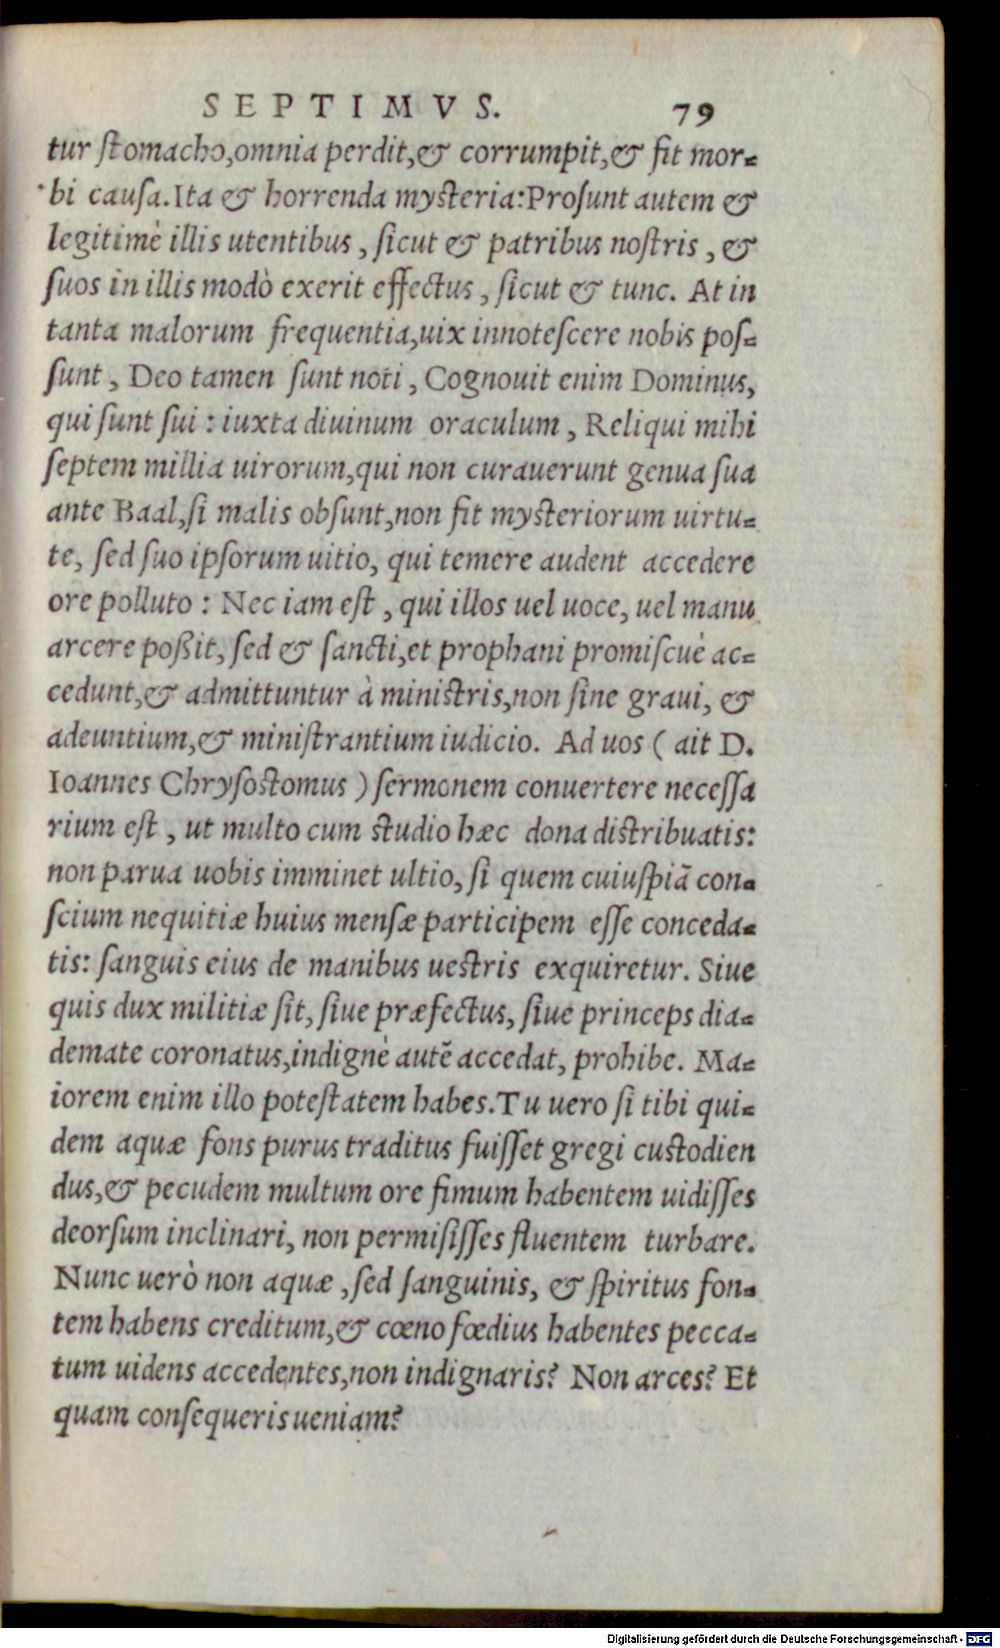 SEPTIMVS. 79
tur ſtomacho,omnia perdit,& corrumpit,& fit mor⸗
bi cauſa.Ita & horrenda myſteria:Proſunt autem &
legitimè illis utentibus , ſicut & patribus noſtris , &
ſuos in illis modò exerit effectus , ſicut & tunc. At in
tanta malorum frequentia,uix innoteſcere nobis poſ⸗
ſunt , Deo tamen ſunt noti , Cognouit enim Dominus,
qui ſunt ſui : iuxta diuinum oraculum , Reliqui mihi
ſeptem millia uirorum,qui non curauerunt genua ſua
ante Baal,ſi malis obſunt,non fit myſteriorum uirtu⸗
te, ſed ſuo ipſorum uitio, qui temere audent accedere
ore polluto : Nec iam eſt , qui illos uel uoce, uel manu
arcere poßit, ſed & ſancti,et prophani promiſcuè ac⸗
cedunt,& admittuntur à miniſtris,non ſine graui, &
adeuntium,& miniſtrantium iudicio. Ad uos ( ait D.
Ioannes Chryſoſtomus ) ſermonem conuertere neceſſa
rium eſt , ut multo cum ſtudio hæc dona diſtribuatis:
non parua uobis imminet ultio, ſi quem cuiuſpiã con⸗
ſcium nequitiæ huius menſæ participem eſſe conceda⸗
tis: ſanguis eius de manibus ueſtris exquiretur. Siue
quis dux militiæ ſit, ſiue præfectus, ſiue princeps dia⸗
demate coronatus,indignè autẽ accedat, prohibe. Ma⸗
iorem enim illo poteſtatem habes.Tu uero ſi tibi qui⸗
dem aquæ fons purus traditus fuiſſet gregi cuſtodien
dus,& pecudem multum ore fimum habentem uidiſſes
deorſum inclinari, non permiſiſſes fluentem turbare.
Nunc uerò non aquæ , ſed ſanguinis, & ſpiritus fon⸗
tem habens creditum,& cœno fœdius habentes pecca⸗
tum uidens accedentes,non indignaris? Non arces? Et
quam conſequeris ueniam?
Digitalisierung gefördert durch die Deutsche Forschungsgemeinschaft - DFG